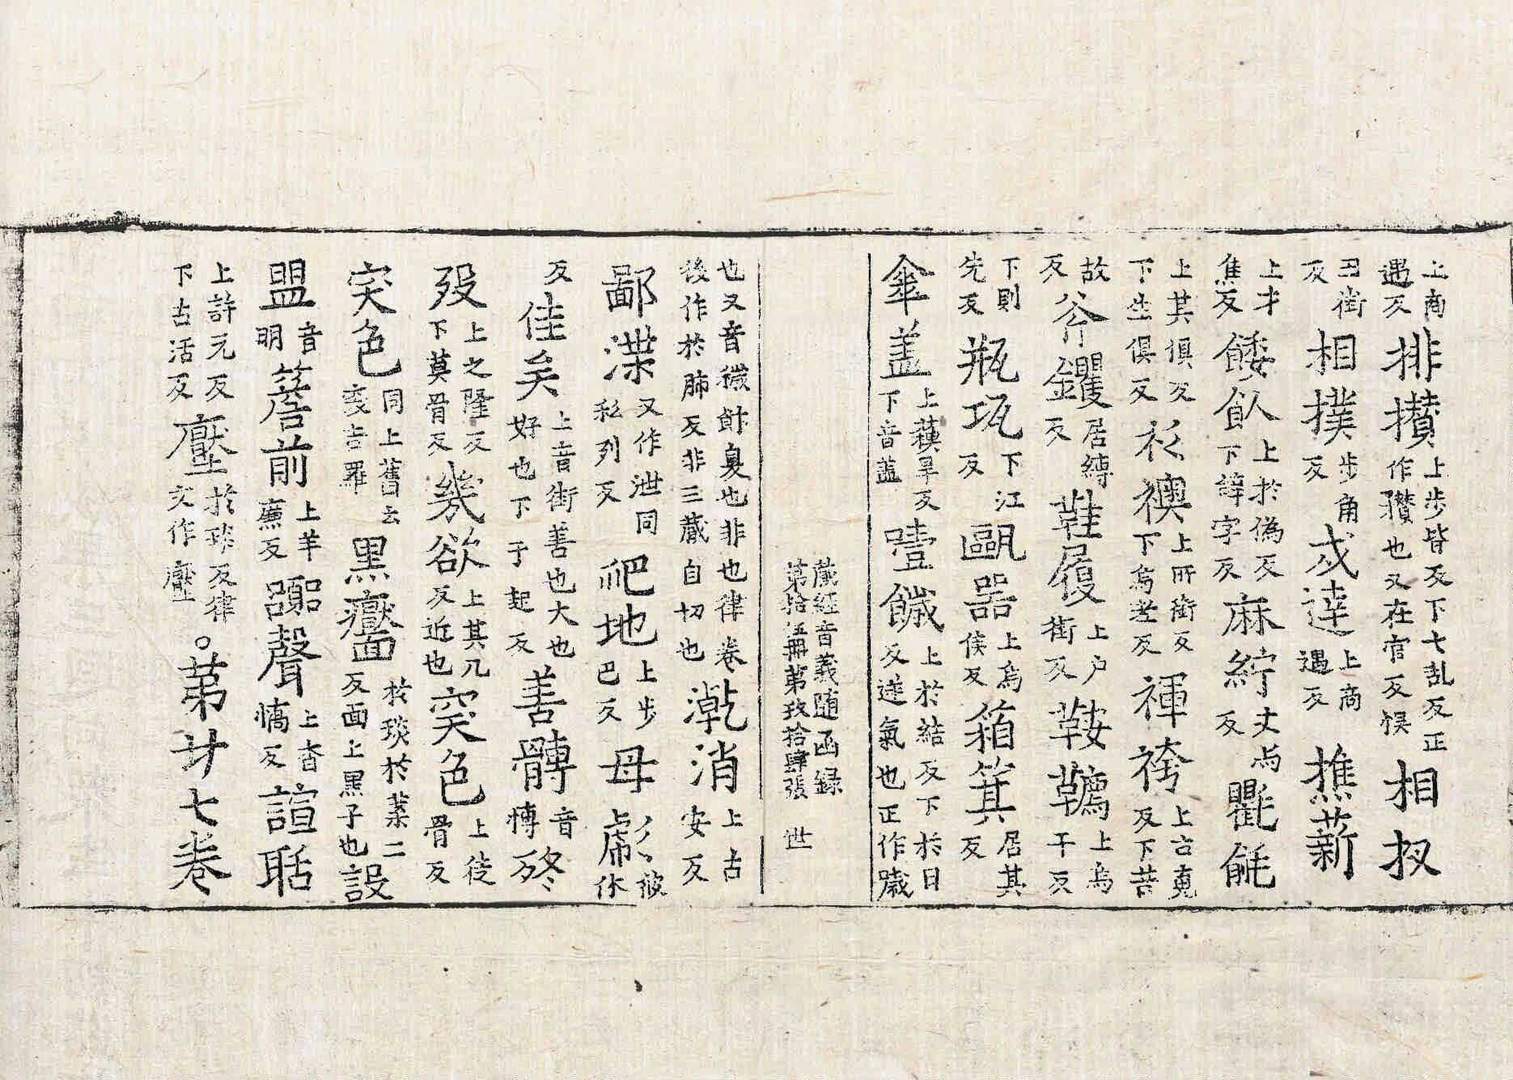 上商遇反排攢上步皆反下七乱反正作䂎也又在官反悮相扠
丑街反相撲步角反戍逹上商遇反撨薪
上才焦反餧飤上於偽反下諱字反麻紵丈与反氍毹
上其俱反下生俱反衫襖上所銜反下烏老反褌袴上古䰟反下苦
故反斧钁居縛反鞋履上户街反鞍韉上烏干反
下則先反瓶瓨下江反甌器上烏侯反箱箕居其反
傘盖上蘓旱反下音盖噎餩上於結反下於日反逆氣也正作
藏經音義随函録
第拾伍冊第玖拾肆張 世
也又音穢餘臭也非也律卷後作於肺反非三藏自切也漧消上古安反
鄙渫又作泄同私列反爬地上步巴反毋虒
反佳矣上音街善也大也好也下于起反善髆音愽
歿上之隆反下莫骨反幾欲上其几反近也突色上徒骨反
宊色同上舊云変吉羅黒黶於琰於葉二反面上黒子也設
盟音明簷前上羊廉反謿聲上㳫愹反諠聒
上許元反下古活反壓於琰反律文作壓。第廿七卷